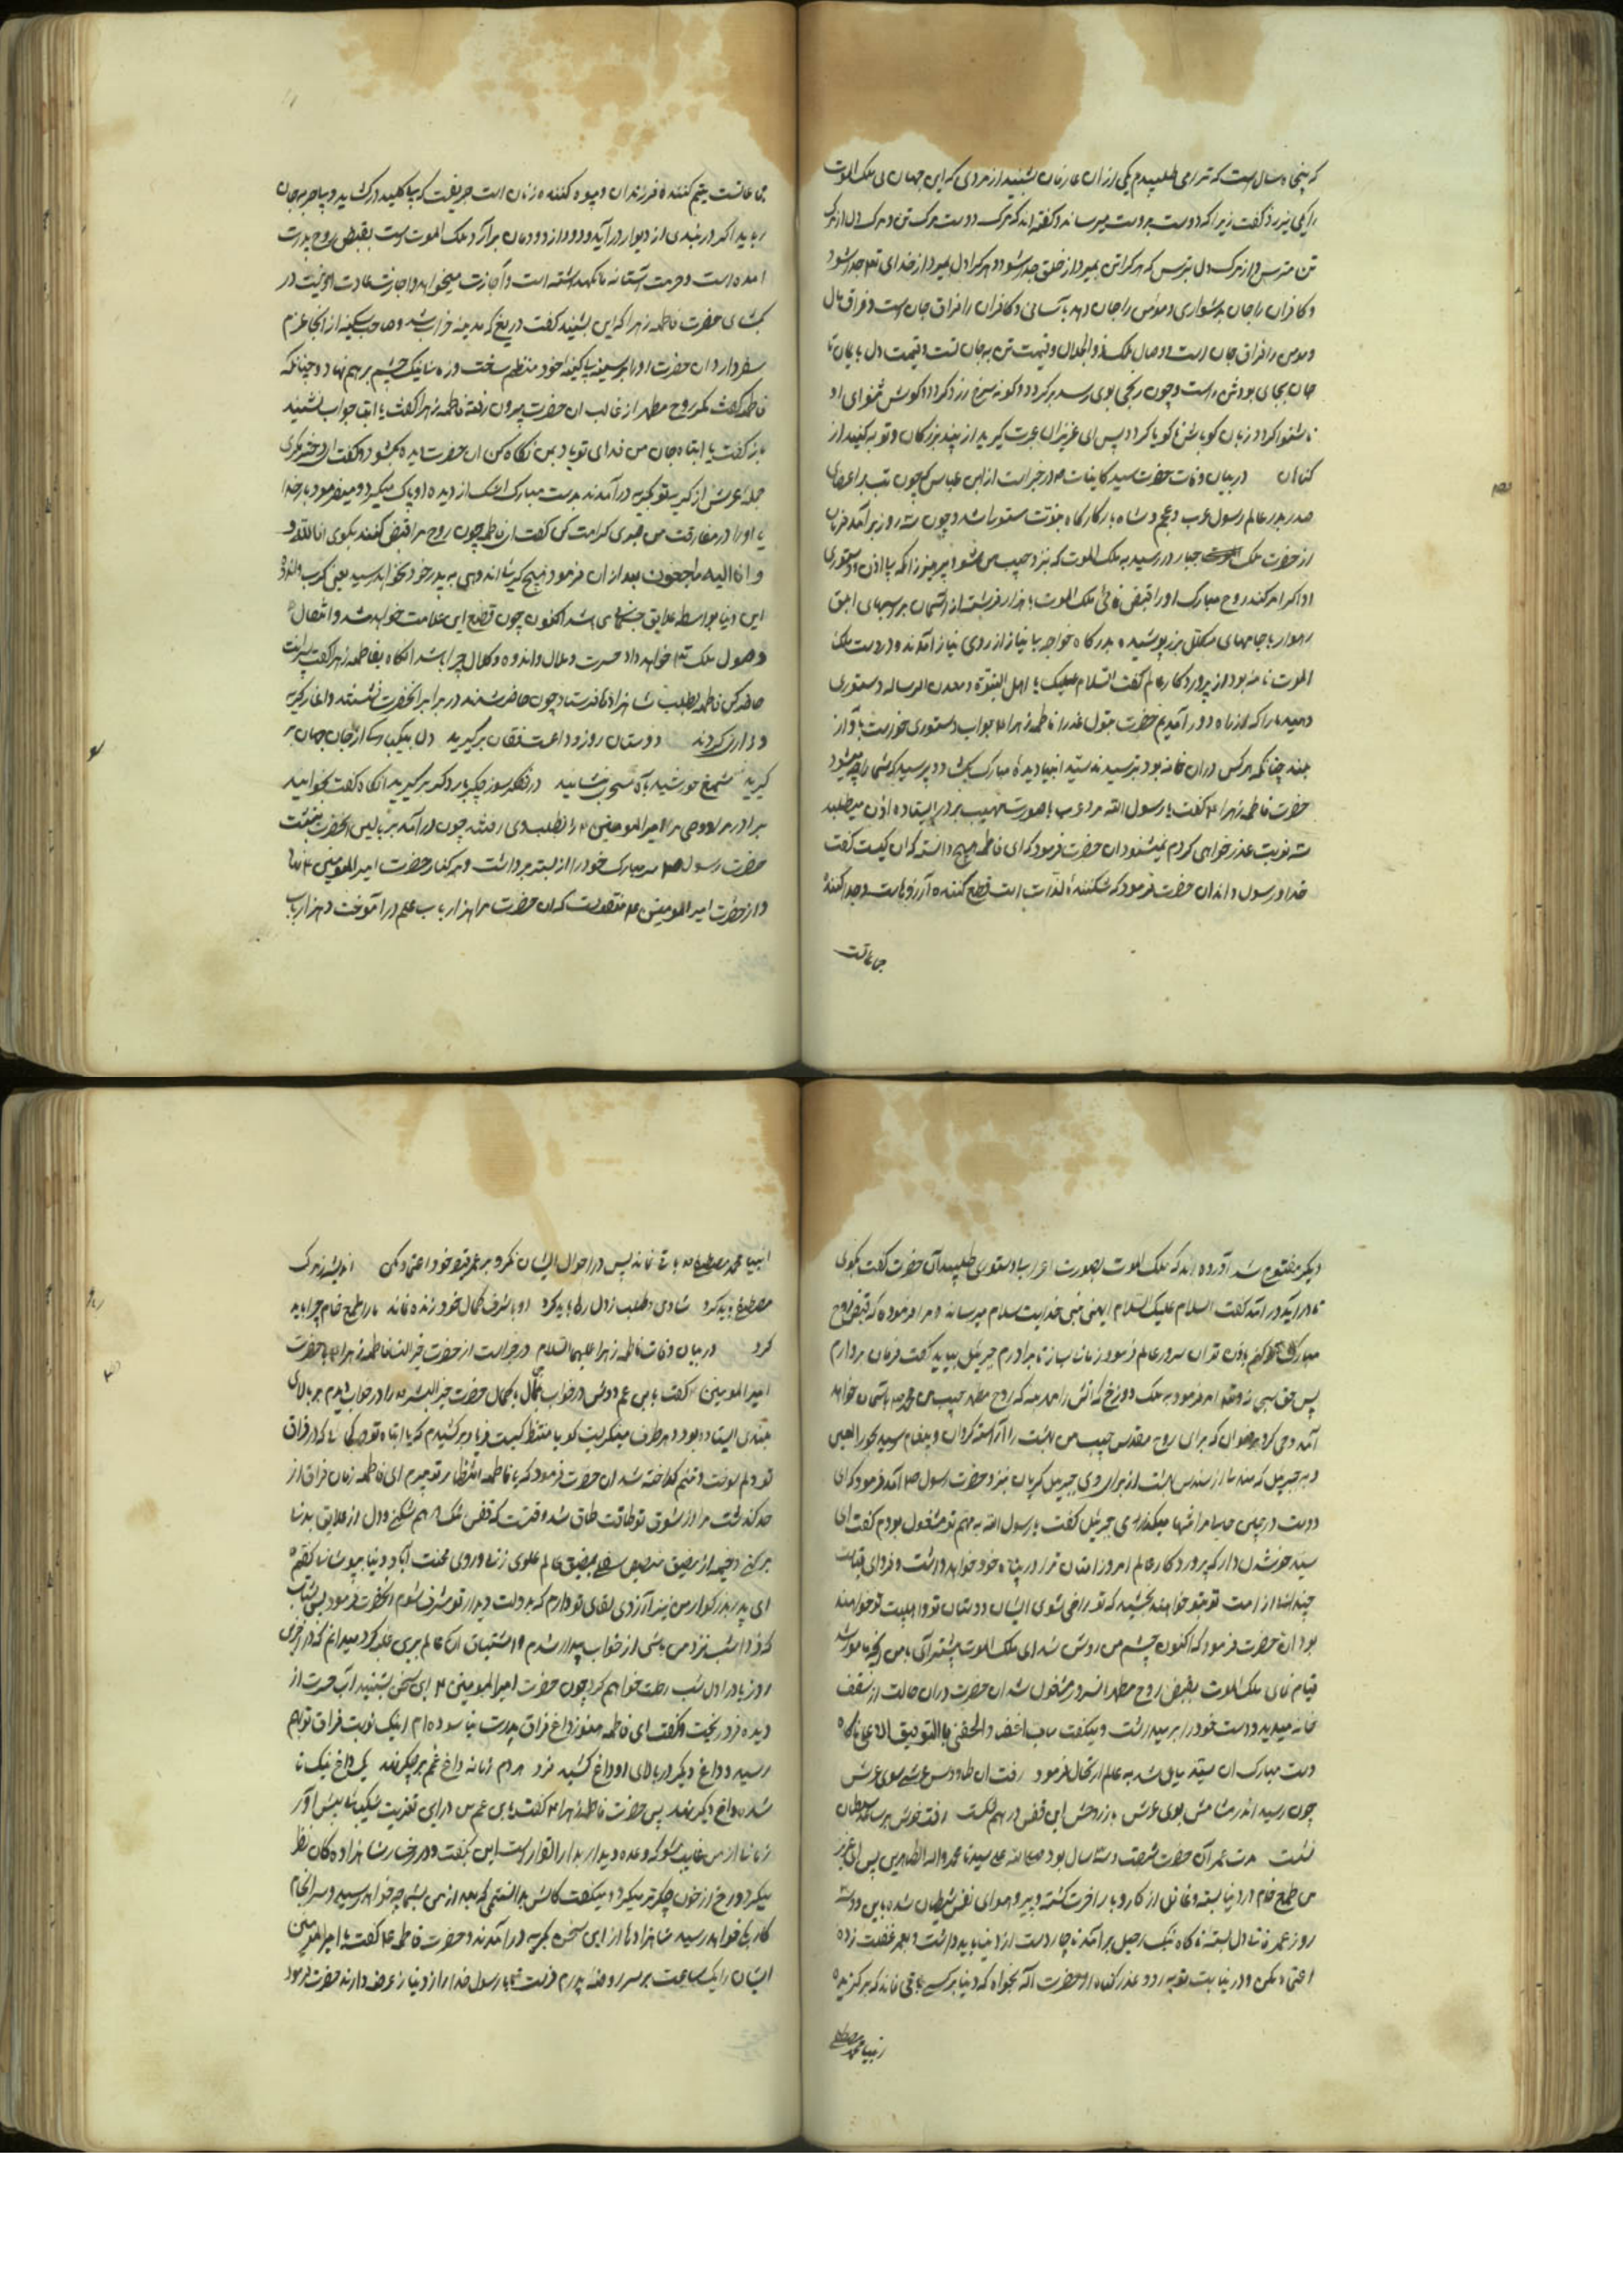 که پنجاه سال است که ترا می طلبیدم یکی ازان عارفان بشنید از مردی که این جهان بی ملک الموت
را یکی نیرزد گفت زیرا که دوست بدوست میرساند و گفته اند که مرک دوست مرک تن و مرک دل از مرک
تن مترس و از مرک دل بترس که هر که را تن بمیرد از خلق جدا شود و هر که را دل بمیرد از خدای تع جدا شود
و کافران را جان بدشواری و مومن را جان دهد بآسانی و کافران را فراق جان است و فراق مال
و مومن را فراق جان است و وصال ملک ذو الجلال و قیمت تن به جان است و قیمت دل بایمان تا
جان بجای بود تن راست و چون رنجی بوی رسد برگردد و گونه سرخ زرد گردد و گوش شنوای او
ناشنوا گردد زبان گویاش ناگویا گردد پس ای عزیزان عبرت گیرید از پند بزرگان و توبه کنید از
گناهان در بیان وفات حضرت سید کاینات ص در خبر است از ابن عباس که چون تب بر اعضای
صدر بدر عالم رسول عرب و عجم و شاه بارگاه نبوت مستولی شد و چون سه روز برآمد فرمان
از حضرت ملک جبار در رسید به ملک الموت که نزد حبیب من شو و بپرهیز زانکه بی اذن و دستوری
او اگر امر کند روح مبارک او را قبض نمائی ملک الموت با هزار فرشته از آسمان بر اسبهای ابلق
رهوار با جامهای مکلل بزر پوشیده بدرگاه خواجه با نیاز از روی نیاز آمدند و در دست ملک
الموت نامه بود از پروردگار عالم گفت السلام علیک یا اهل النبوة و معدن الرساله دستوری
دهید ما را که از راه دور آمدیم حضرت بتول عذرا فاطمه زهرا ع جواب دستوری خواست بآواز
بلند چنانکه هر کس دران خانه بود بترسیدند سید انبیا دیدهٔ مبارک بکشاد و پرسید که شما را چه میشود
حضرت فاطمه زهرا ع گفت یا رسول الله مرد عرب با صورت مهیب بر در ایستاده اذن میطلبد
سه نوبت عذر خواهی کردم نمیشنود ان حضرت فرمود که ای فاطمه هیچ دانستی که ان کیست گفت
خدا و رسول داند ان حضرت فرمود که شکنندهٔ لذات است قطع کننده آرزوهاست و جدا کنندهٔ
جماعتست
جماعتست یتیم کنندهٔ فرزندان و بیوه کننده زنان است حریفیست که بی کلید در کشاید و بی حربه جان
رباید اگر در ببندی از دیوار درآید و دود از دودمان برآرد ملک الموت است بقبض روح پدرت
امده است و حرمت آستانه ما نگهداشته است و اجازت میخواهد و اجازت عادت او نیست در
بکشای حضرت فاطمه زهرا که این بشنید گفت دریغ که مدینه خراب شد و صاحب سکینه از اینجا عزم
سفر دارد ان حضرت او را بر سینه بی کینه خود منتظم ساخت و زمانی نیک چشم بر هم نهاد و چنانکه
فاطمه گفت مکر روح مطهر از قالب ان حضرت بیرون رفته فاطمه زهرا گفت یا ابتا جواب نشنید
باز گفت یا ابتاه جان من فدای تو باد بمن نگاه کن ان حضرت دیده بکشود و گفت ای دختر مگری
حملهٔ عرش از گریه تو بگریه درآمدند بدست مبارک اشک از دیده او پاک میکرد و میفرمود بار خدا
یا او را در مفارقت من صبوری کرامت کن گفت ای فاطمه چون روح مرا قبض کنند بگوی انا لله و
و انا الیه راجعون بعد ازان فرمود هیچ کریه و اندوهی به پدر تو نخواهد رسید یعنی کرب و اندوه
این دنیا بواسطه علایق جسمانی باشد اکنون چون قطع این علامت خواهد شد و اتصال
وصول ملک تع خواهد داد حسرت و ملال و اندوه و کلال چرا باشد انگاه بفاطمه زهرا گفت پسرانت
حاضر کن فاطمه بطلب شاهزادها فرستاد چون حاضر شدند در برابر انحضرت نشستند و اغاز گریه
و زاری کردند دوستان روز وداعست فغان برگیرید دل بیکبارگی از جان جهان بر
گیرید شمع خورشید بآه سحر بنشانید
برادر مرا و وصی مرا امیر المومنین ع را بطلب وی رفتند چون درآمد بر بالین انحضرت بنشست
حضرت رسول ص سر مبارک خود را از بستر برداشت و بر کنار حضرت امیر المومنین ع نهاد
و از حضرت امیر المومنین ع منقولست که ان حضرت مرا هزار باب علم در آموخت و هزار باب
دیگر مفتوح شد آورده اند که ملک الموت بصورت اعرابی دستوری طلبید آن حضرت گفت بگوی
تا درآید درآمد گفت السلام علیک السلام ایها النبی خدایت سلام میرساند و مرا فرموده که قبض روح
مبارک تو کنم باذن تو ان سرور عالم فرمود زمانی باز تا برادرم جبرئیل بیاید گفت فرمان بردارم
پس حق سبحانه و تعالی امر فرمود به ملک دوزخ که اتش را بمیراند که روح مطهر حبیب من محمد ص باسمان خواهد
آمد و وحی کرد برضوان که برای روح مقدس حبیب من بهشت را آراسته گردان و پیغام رسید بحور العین
و به جبرئیل که مندیلی از سندس بهشت از برای وی جبرئیل گریان بنزد حضرت رسول ص آمد فرمود که ای
دوست در چنین حالی مرا تنها میگذاری جبرئیل گفت یا رسول الله به مهم تو مشغول بودم گفت ای
سید خوشدل دار که پروردگار عالم امروز امتان ترا در پناه خود خواهد داشت و فردای قیامت
چندانشان از امت تو بتو خواهند بخشید که تو راضی شوی ایشان دوستان تو و اهلبیت تو خواهند
بود ان حضرت فرمود که اکنون چشم من روشن شد ای ملک الموت پیشتر آی باین آنچه مامور شده
قیام نمای ملک الموت بقبض روح مطهر انسرور مشغول شد ان حضرت دران حالت از سقف
خانه میدید و دست خود را بر میداشت و میگفت رب اغفر و الحقنی بالتوفیق الاعلی ناگاه
دست مبارک ان سید مایل شد به عالم ارتحال فرمود رفت ان طاووس عرشی سوی عرش
چون رسید اندر مشامش بوی عرش باز روحش این قفس درهم شکست رفت خوش بر ساعد سلطان
نشست مدت عمر آن حضرت شصت و سه سال بود صلی الله علی سیدنا محمد و اله الطاهرین پس ای عزیز
من طمع خام در دنیا بسته و غافل از کاروبار اخرت گشته و پیرو هوای نفس شیطان شده باین دو سه
روز عمر فانی دل بسته ناگاه بانگ رحیل برآمد ناچار دست از دنیا باید داشت و بعمر غفلت زده
اعتماد مکن و در نیابت توبه رو و عذر گناه از حضرت اله بخواه که دنیا بر کسی باقی نماند که بر گزیده
انبیا محمد مصطفی
انبیا محمد مصطفی ص باقی نماند پس در احوال ایشان نگر و بر عمر بیوفا خود اعتماد مکن اندیشه ز مرک
مصطفی باید کرد شادی و طلب ز دل رها باید کرد او با شرف کمال خود زنده نماند ما را طمع خام چرا باید
کرد در بیان وفات فاطمه زهرا علیها السلام در خبر است از حضرت خیر النسا فاطمه زهرا ع با حضرت
امیر المومنین ع گفت یا بن عم دوش در خواب جمال با کمال حضرت خیر البشر ص را در خواب دیدم بر بالای
بلندی ایستاده بود و هر طرف مینگریست گویا منتظر کیست فریاد برکشیدم که یا ابتاه تو کجائی که در فراق
تو دلم سوخت و تنم گداخته شد ان حضرت فرمود که یا فاطمه انتظار تو میبرم ای فاطمه زمان فراق از
حد گذشت مرا از شوق تو طاقت طاق شد وقتست که قفس تنگ در هم شکنی و دل از علایق بدنی
بر کنی و خیمه از مضیق حضیض سفلی بفضای عالم علوی زنی و روی محنت اباد دنیا بپوشانی گفتم
ای پدر بزرگوار من نیز آرزوی لقای تو دارم که بدولت دیدار تو مشرف شوم انحضرت فرمود پس بشتاب
که فردا شب نزد من باشی از خواب بیدار شدم و اشتیاق آن عالم بر من غلبه کرد میدانم که در آخر این
روز یا در اول شب رحلت خواهم کرد چون حضرت امیر المومنین ع این سخن بشنید آب حسرت از
دیده فرو ریخت و گفت ای فاطمه هنوز داغ فراق پدرت نیاسوده ام اینک نوبت فراق تو هم
رسید و داغ دیگر بر بالای او داغ کشید فرد هر دم زمانه داغ غم بر جگر نهد یک داغ نیک نا
شده داغ دگر نهد پس حضرت فاطمه زهرا ع گفت یا بن عم من درین تعزیت شکیبائی پیش آور
زمانی از من غایب مشو که وعده دیدار بدار القرار است این بگفت و در رخسار شاهزاده گان نظر
میکرد و رخ از خون جگر تر میکرد و میگفت کاش بدانستمی که بعد از من بشما چه خواهد رسید و سرانجام
کار بکجا خواهد رسید شاهزادها از این سخن بگریه درآمدند و حضرت فاطمه ع گفت یا امیر المومنین
ایشان را یک ساعت بر سر روضه پدرم فرست تا با رسول خدا راز و نیاز عرضه دارند حضرت فرمود